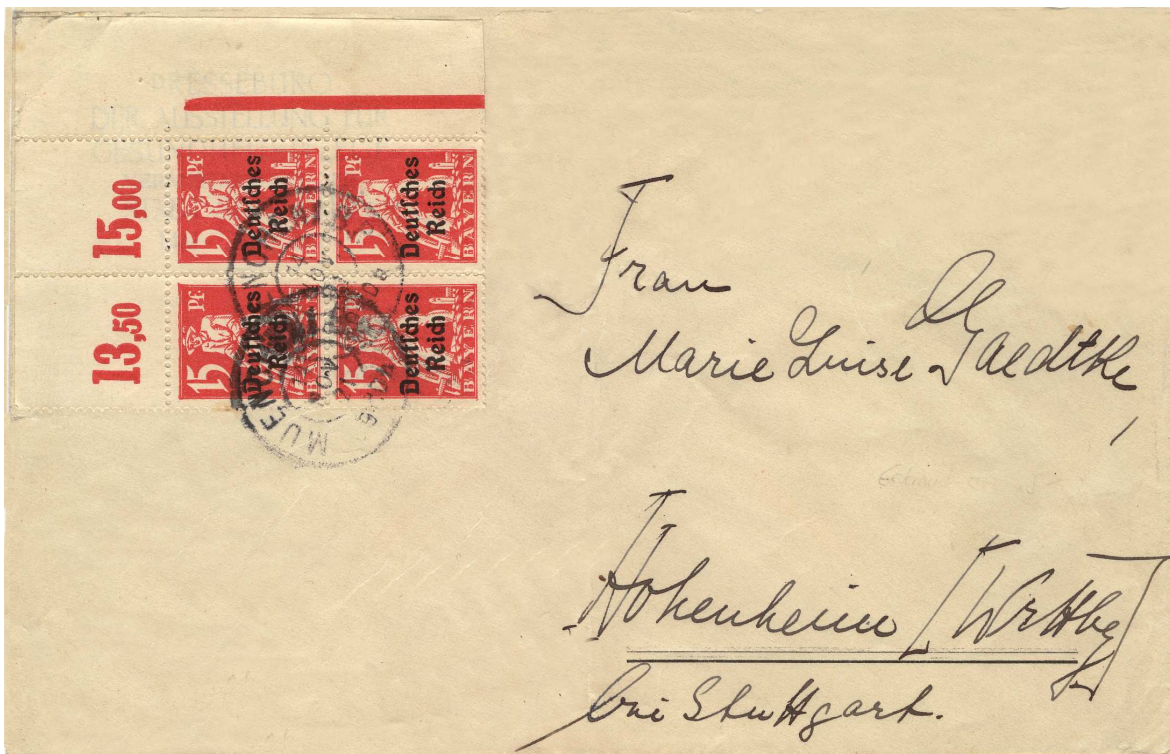 PRESSEBÜRO
DER AUSSTELLUNG FÜR
15,00
13,50
15 Pf. BAYERN
Deutsches
Reich
15 Pf. BAYERN
Deutsches
Reich
15 Pf. BAYERN
Deutsches
Reich
15 Pf. BAYERN
Deutsches
Reich
MUENCHEN
Frau
Marie Luise Gaedtke,
Hohenheim [Wrttbg]
bei Stuttgart.